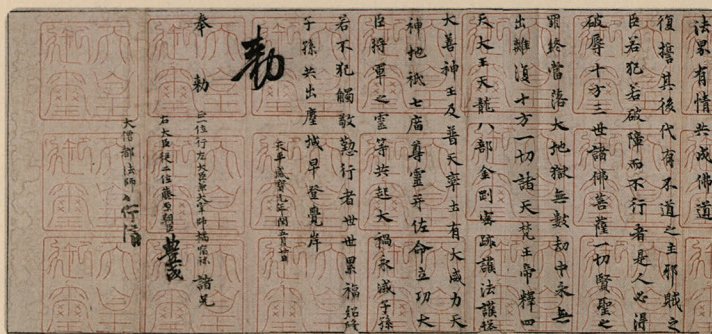 法界有情共成佛道
復誓其後代有不道之主邪賊之
臣若犯若破障而不行者是人必得
破辱十方三世諸佛菩薩一切賢聖之
罪終當落大地獄無數劫中永無
出離復十方一切諸天梵王帝釋四
天大王天龍八部金剛密跡護法護塔
大善神王及普天率土有大威力天
神地祇七庿尊靈并佐命立功大
臣將軍之靈等共起大禍永滅子孫
若不犯觸敬勤行者世世累福紹隆
子孫共出塵域早登覺岸
天平感寶元年閏五月廿日
勅
奉 勅 正一位行左大臣兼大宰帥橘宿祢 諸兄
右大臣從二位藤原朝臣 豊成
大僧都法師 行信